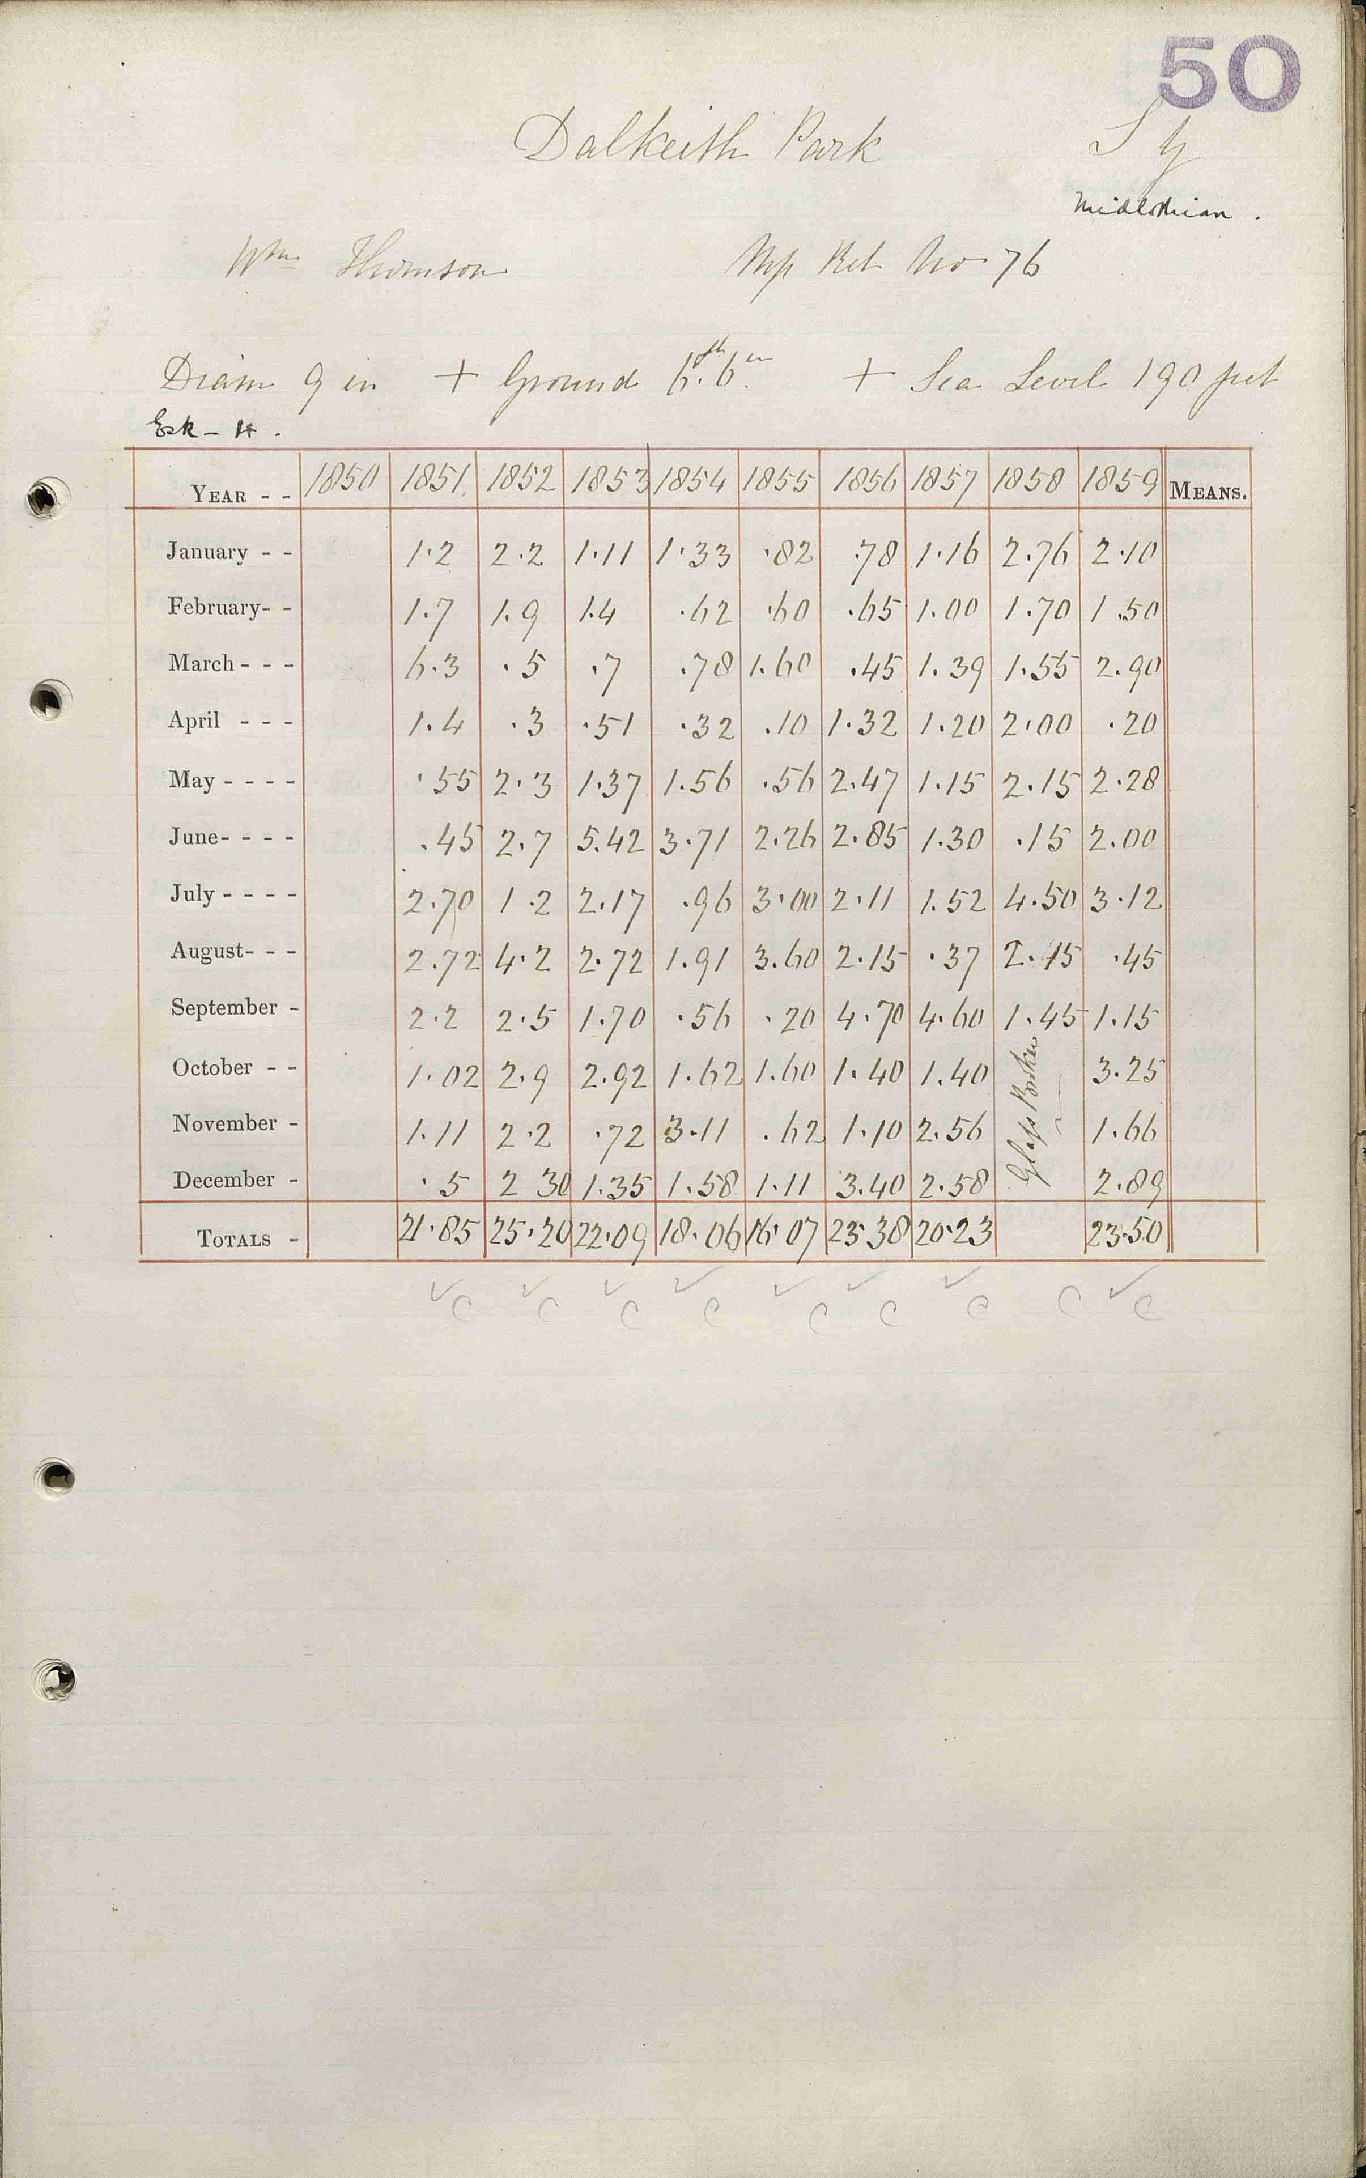 50
Dalkeith Park
Midlothian.
Wm Thomson Mp Ret No 76
Diam 9 in + Ground 6ft. 6in. + Sea Level 190 feet
Esk - H.
YEAR - - 1850 1851. 1852 1853 1854 1855 1856 1857 1858 1859 MEANS.
January - - 1.2 2.2 1.11 1.33 .82 .78 1.16 2.76 2.10
February- - 1.7 1.9 1.4 .62 .60 .65 1.00 1.70 1.50
March - - - 6.3 .5 .7 .78 1.60 .45 1.39 1.55 2.90
April - - - 1.4 .3 .51 .32 .10 1.32 1.20 2.00 .20
May - - - - .55 2.3 1.37 1.56 .56 2.47 1.15 2.15 2.28
June- - - - .45 2.7 5.42 3.71 2.26 2.85 1.30 .15 2.00
July - - - - 2.70 1.2 2.17 .96 3.00 2.11 1.52 4.50 3.12
August- - - 2.72 4.2 2.72 1.91 3.60 2.15 .37 2.15 .45
September - 2.2 2.5 1.70 .56 .20 4.70 4.60 1.45 1.15
October - - 1.02 2.9 2.92 1.62 1.60 1.40 1.40 Glass Broken 3.25
November - 1.11 2.2 .72 3.11 .62 1.10 2.56 1.66
December - .5 2 30 1.35 1.58 1.11 3.40 2.58 2.89
TOTALS - 21.85 25.20 22.09 18.06 16.07 23.38 20.23 23.50
C C C C C C C C C